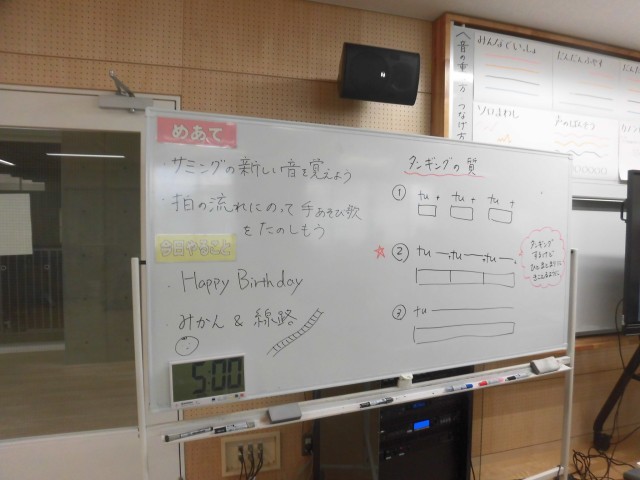 めあて
・サミングの新しい音を覚えよう
・拍の流れにのって手あそび歌
をたのしもう
今日やること
・Happy Birthday
・みかん & 線路
5:00
タンギングの質
① tu tu tu
② tu tu tu
タンギング
するけど
ひとまとまりに
きこえるように
③ tu
音の重ね方 つなげ方
みんなでいっしょ
だんだんふやす